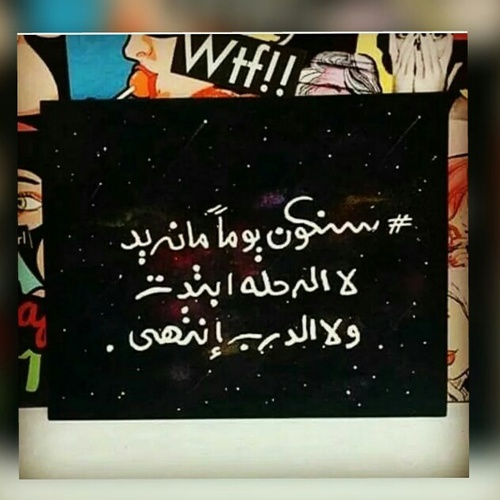 Wtf!!
# سنكون يوماً ما نريد
لا الرحله ابتدت
ولا الدرب إنتهى .